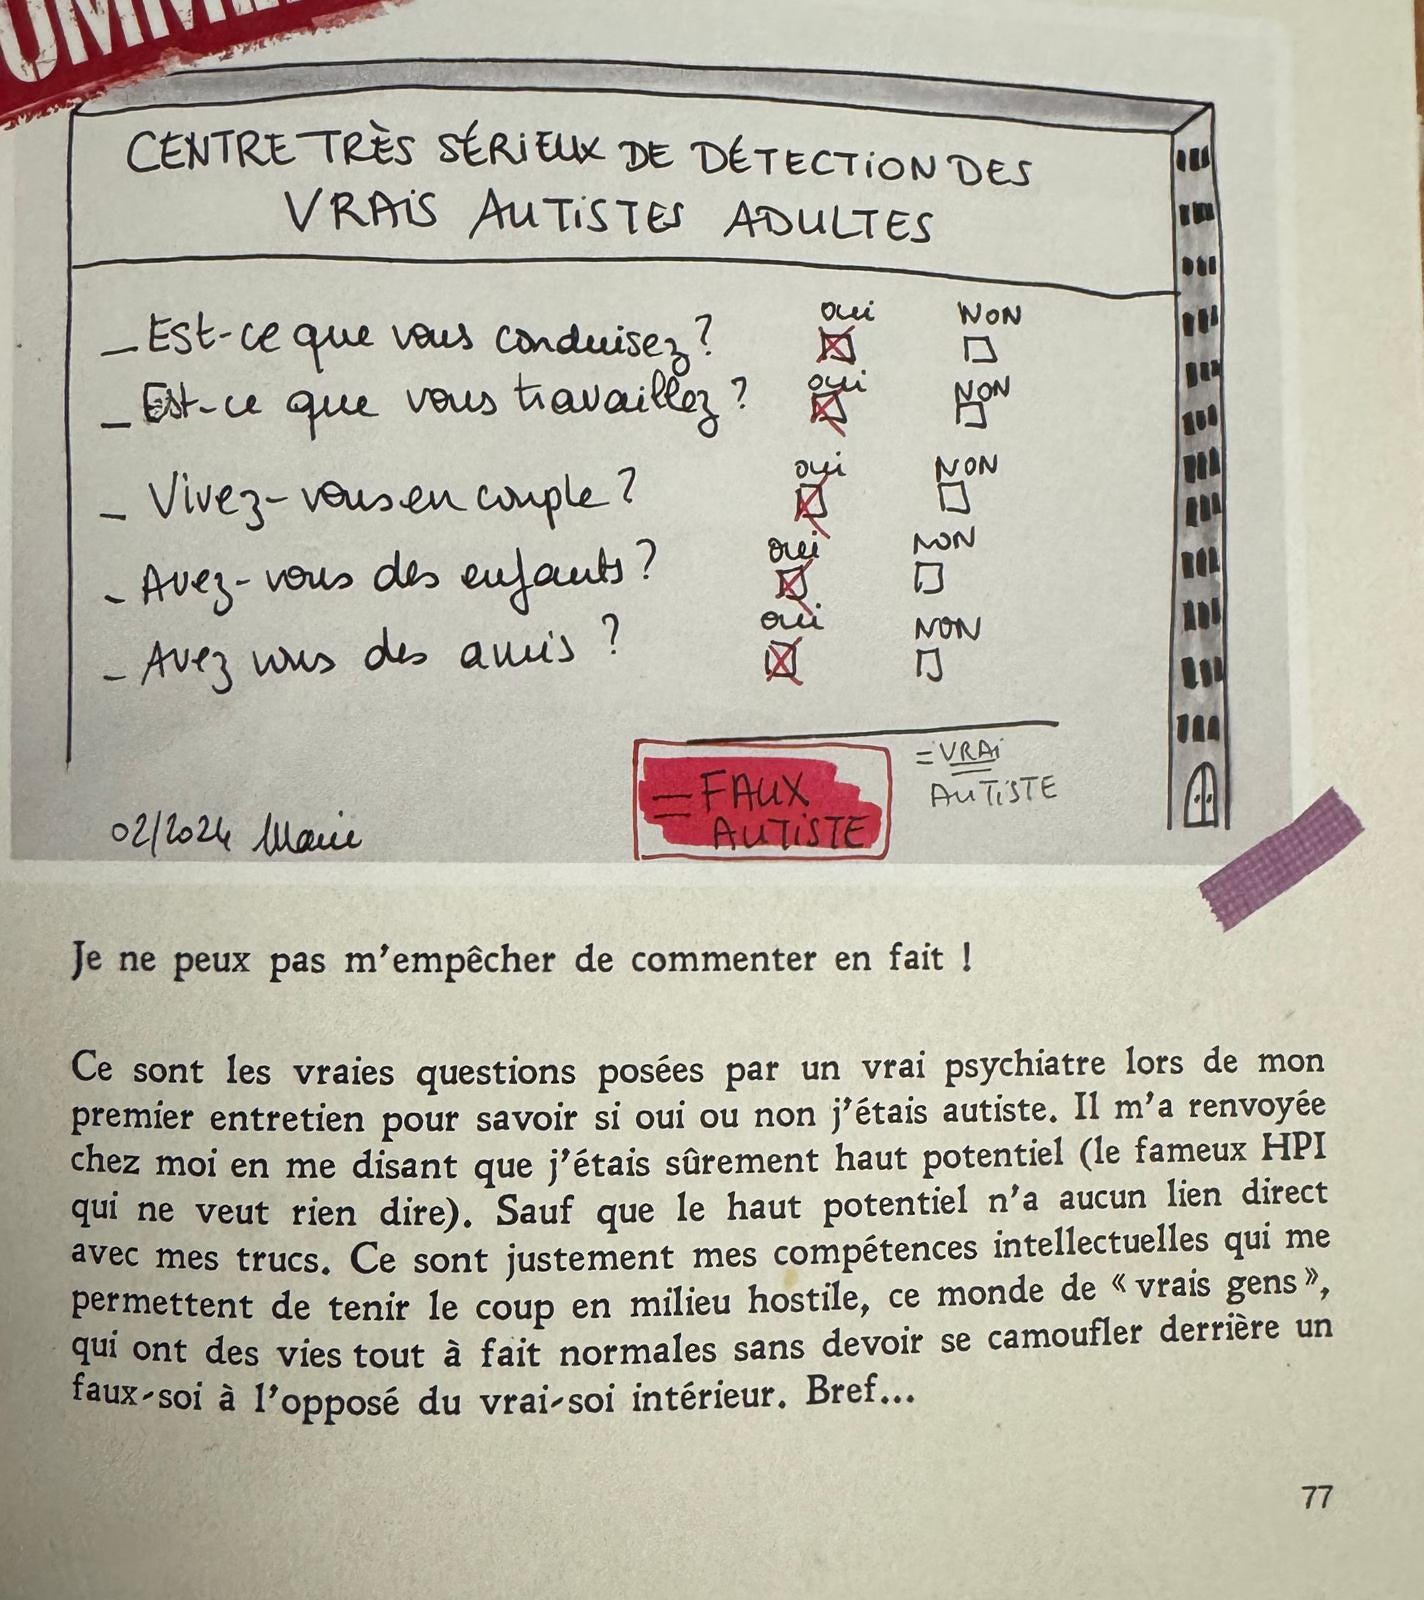 CENTRE TRÈS SÉRIEUX DE DÉTECTION DES
VRAIS AUTISTES ADULTES
_ Est-ce que vous conduisez ? oui NON
_ Est-ce que vous travaillez ? oui NON
_ Vivez-vous en couple ? oui NON
_ Avez-vous des enfants ? oui NON
_ Avez vous des amis ? oui NON
= FAUX
AUTISTE
= VRAI
AUTISTE
02/2024 Marie
Je ne peux pas m'empêcher de commenter en fait !
Ce sont les vraies questions posées par un vrai psychiatre lors de mon
premier entretien pour savoir si oui ou non j'étais autiste. Il m'a renvoyée
chez moi en me disant que j'étais sûrement haut potentiel (le fameux HPI
qui ne veut rien dire). Sauf que le haut potentiel n'a aucun lien direct
avec mes trucs. Ce sont justement mes compétences intellectuelles qui me
permettent de tenir le coup en milieu hostile, ce monde de « vrais gens »,
qui ont des vies tout à fait normales sans devoir se camoufler derrière un
faux-soi à l'opposé du vrai-soi intérieur. Bref...
77